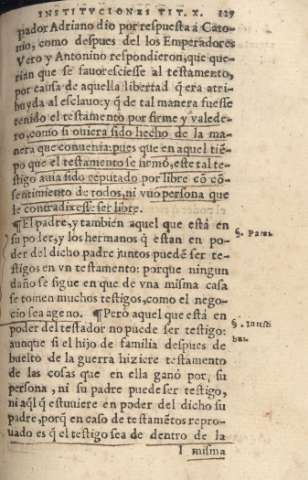 INSTITVCIONES TIT. X. 129
pador Adriano dio por respuesta á Cato-
nio, como despues del los Emperadores
Vero y Antonino respondieron, que que-
rian que se fauoresciesse al testamento,
por causa de aquella libertad q̃ era atri-
buyda al esclauo: y q̃ de tal manera fuesse
tenido el testamento por firme y valede-
ro, como si ouiera sido hecho de la ma-
nera que conuenia: pues que en aquel tiẽ-
po que el testamento se firmó, este tal te-
stigo auia sido reputado por libre cõ cõ-
sentimiento de todos, ni vuo persona que
le contradixesse ser libre.
¶ El padre, y tambien aquel que está en
su poder, y los hermanos q̃ estan en po-
der del dicho padre juntos puedẽ ser te-
stigos en vn testamento: porque ningun
daño se sigue en que de vna misma casa
se tomen muchos testigos, como el nego-
cio sea ageno. ¶ Pero aquel que está en
poder del testador no puede ser testigo:
aunque si el hijo de familia despues de
buelto de la guerra hiziere testamento
de las cosas que en ella ganó por su
persona, ni su padre puede ser testigo,
ni aq̃l q̃ estuuiere en poder del dicho su
padre, porq̃ en caso de testamẽtos repro-
uado es q̃ el testigo sea de dentro de la
I misma
§. Pater.